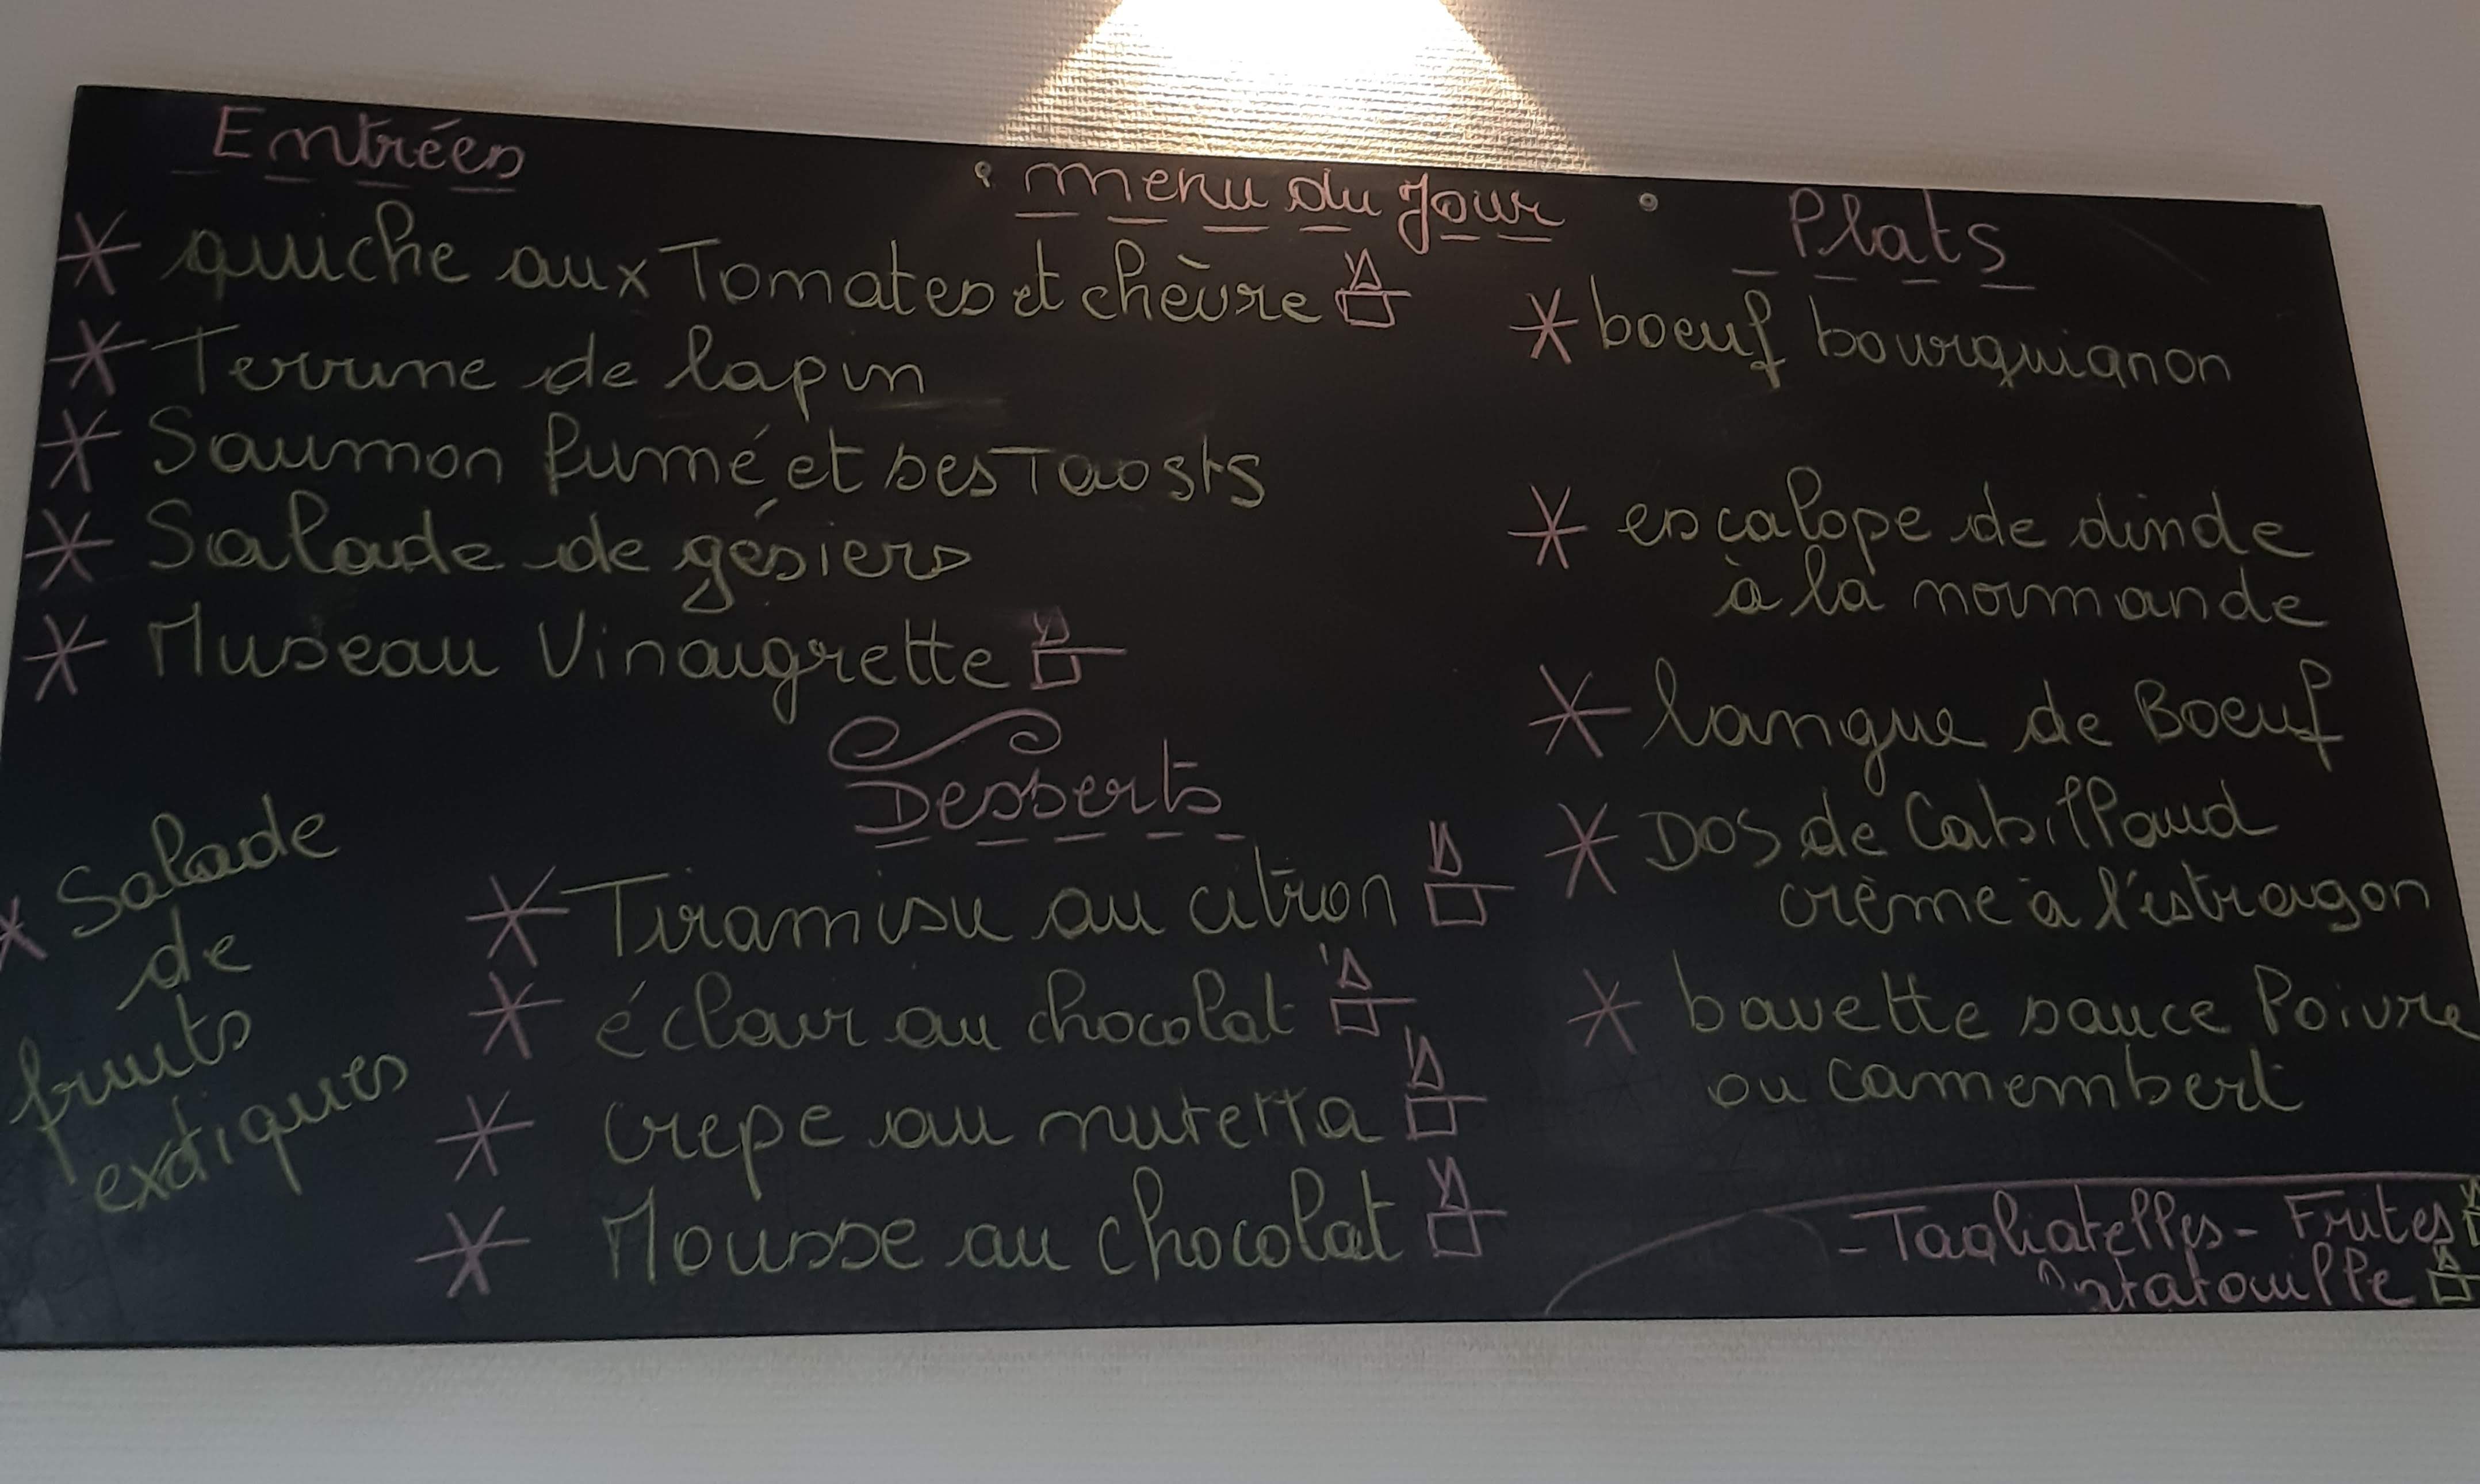 Entrées
menu du Jour
* quiche aux Tomates et chèvre
* Terrine de lapin
* Saumon fumé et ses Taosts
* Salade de gésiers
* Museau Vinaigrette
Desserts
* Tiramisu au citron
* éclair au chocolat
* crepe au nutella
* Mousse au chocolat
* Salade
de
fruits
exotiques
Plats
* boeuf bourguignon
* escalope de dinde
à la normande
* langue de Boeuf
* Dos de Cabillaud
crème à l'estragon
* bavette sauce Poivre
ou camembert
- Tagliatelles - Frites
Ratatouille